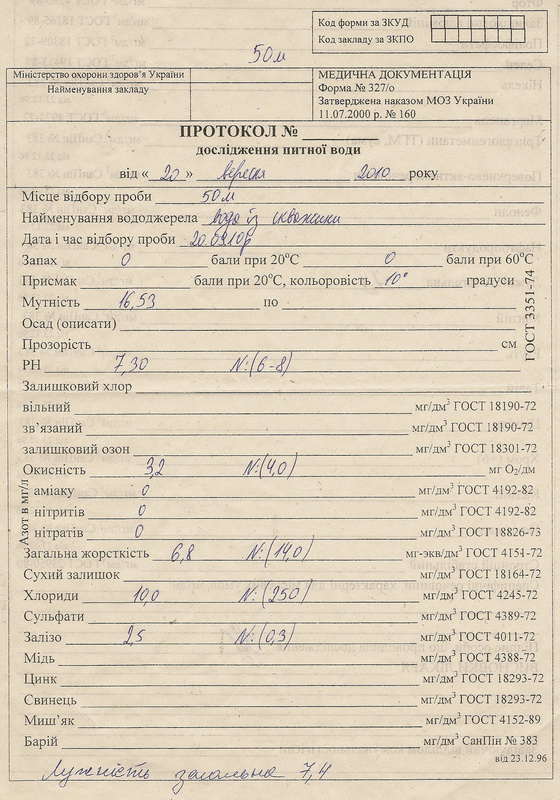 Код форми за ЗКУД
Код закладу за ЗКПО
50м
Міністерство охорони здоров'я України
Найменування закладу
МЕДИЧНА ДОКУМЕНТАЦІЯ
Форма № 327/о
Затверджена наказом МОЗ України
11.07.2000 р. № 160
ПРОТОКОЛ №
дослідження питної води
від « 20 » вересня 2010 року
Місце відбору проби 50м
Найменування вододжерела вода із скважини
Дата і час відбору проби 20.09.10р
Запах 0 бали при 20°С 0 бали при 60°С
Присмак бали при 20°С, кольоровість 10° градуси
Мутність 16,53 по
Осад (описати)
Прозорість см
ГОСТ 3351-74
РН 7,30 N:(6-8)
Залишковий хлор
вільний мг/дм³ ГОСТ 18190-72
зв'язаний мг/дм³ ГОСТ 18190-72
залишковий озон мг/дм³ ГОСТ 18301-72
Окисність 3,2 N:(4,0) мг О₂/дм
Азот в мг/л
аміаку 0 мг/дм³ ГОСТ 4192-82
нітритів 0 мг/дм³ ГОСТ 4192-82
нітратів 0 мг/дм³ ГОСТ 18826-73
Загальна жорсткість 6,8 N:(14,0) мг-экв/дм³ ГОСТ 4151-72
Сухий залишок мг/дм³ ГОСТ 18164-72
Хлориди 10,0 N:(250) мг/дм³ ГОСТ 4245-72
Сульфати мг/дм³ ГОСТ 4389-72
Залізо 2,5 N:(0,3) мг/дм³ ГОСТ 4011-72
Мідь мг/дм³ ГОСТ 4388-72
Цинк мг/дм³ ГОСТ 18293-72
Свинець мг/дм³ ГОСТ 18293-72
Миш'як мг/дм³ ГОСТ 4152-89
Барій мг/дм³ СанПін № 383
від 23.12.96
Лужність загальна 7,4